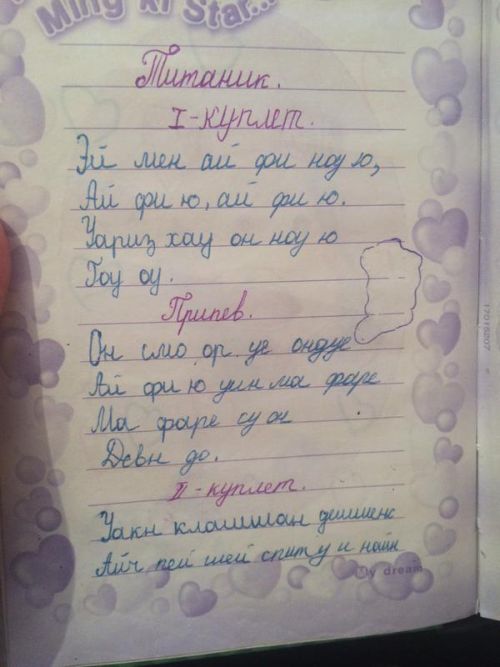 Ming xi Star...
Титаник.
I-куплет.
Эй мен ай фи ноу ю,
Ай фи ю, ай фи ю.
Уариз хау он ноу ю
Гоу оу.
Припев.
Он смо ор уе ондуе
Ай фи ю уин ма фаре
Ма фаре су
Девн до.
II-куплет.
Уакн клашшан
Айч пей шей спит у и найн
My dream
170162007